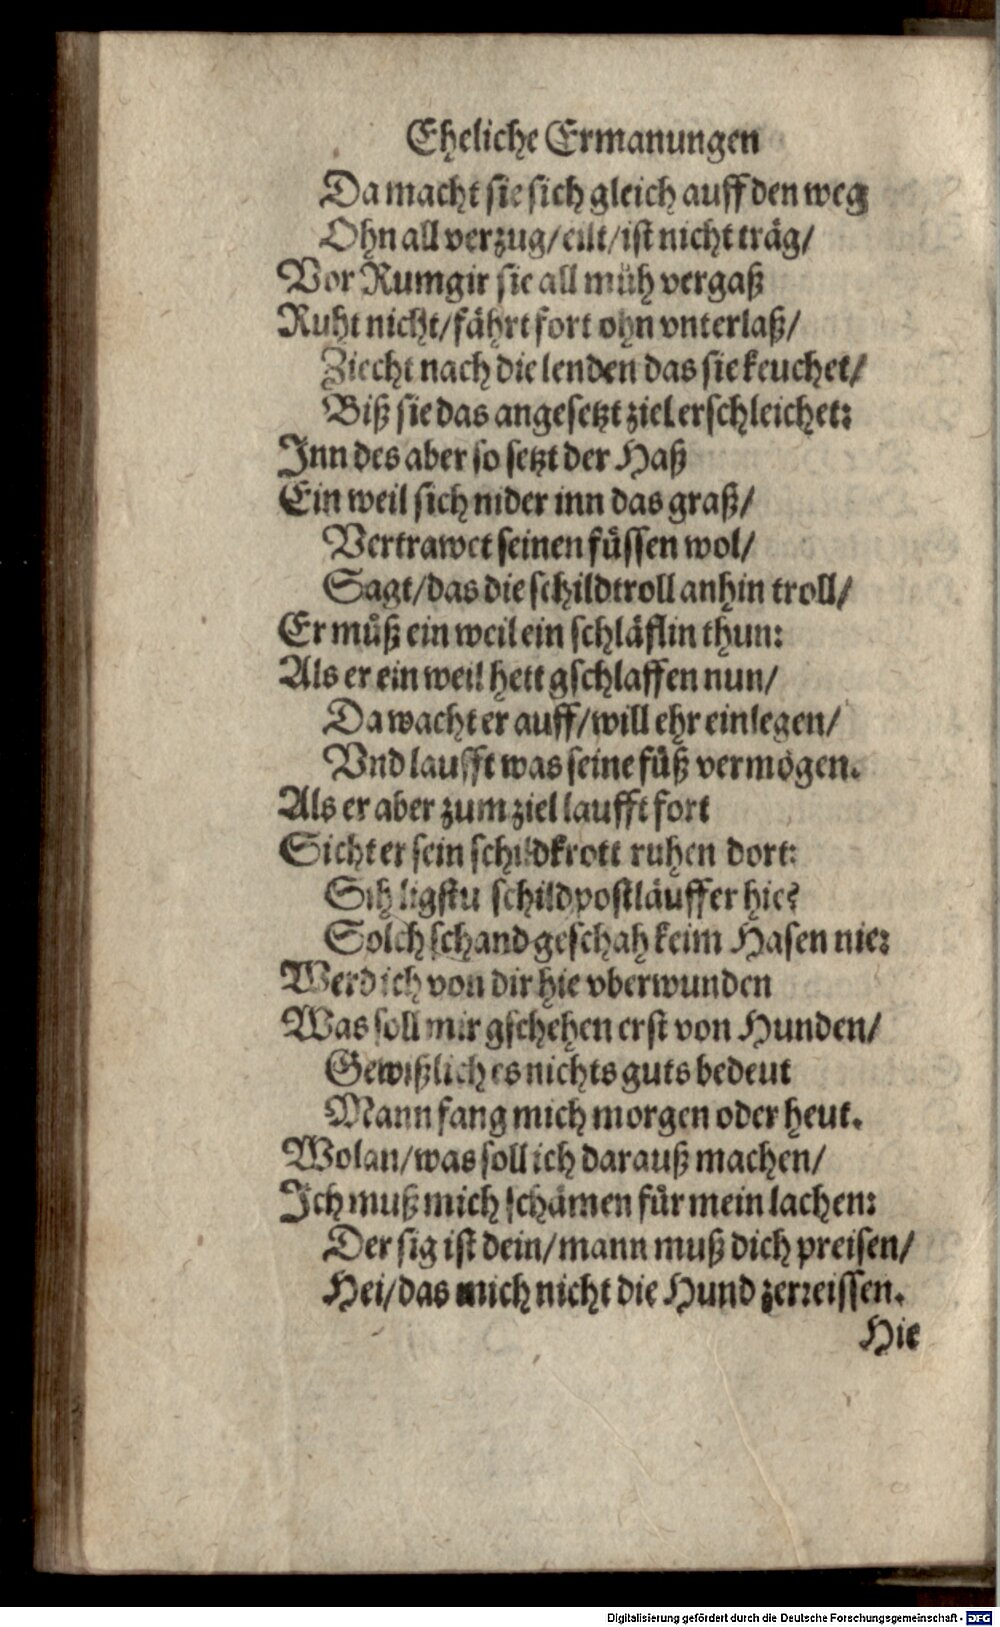 Eheliche Ermanungen
Da macht sie sich gleich auff den weg
Ohn all verzug/eilt/ist nicht träg/
Vor Rumgir sie all müh vergaß
Ruht nicht/fährt fort ohn vnterlaß/
Ziecht nach die lenden das sie keuchet/
Biß sie das angesetzt ziel erschleichet:
Inn des aber so setzt der Haß
Ein weil sich nider inn das graß/
Vertrawet seinen füssen wol/
Sagt/das die schildtroll anhin troll/
Er müß ein weil ein schläflin thun:
Als er ein weil hett gschlaffen nun/
Da wacht er auff/will ehr einlegen/
Vnd laufft was seine füß vermögen.
Als er aber zum ziel laufft fort
Sicht er sein schildkrott ruhen dort:
Sih ligstu schildpostläuffer hie?
Solch schand geschah keim Hasen nie:
Werd ich von dir hie vberwunden
Was soll mir gschehen erst von Hunden/
Gewißlich es nichts guts bedeut
Mann fang mich morgen oder heut.
Wolan/was soll ich darauß machen/
Ich muß mich schämen für mein lachen:
Der sig ist dein/mann muß dich preisen/
Hei/das mich nicht die Hund zerreissen.
Hie
Digitalisierung gefördert durch die Deutsche Forschungsgemeinschaft - DFG